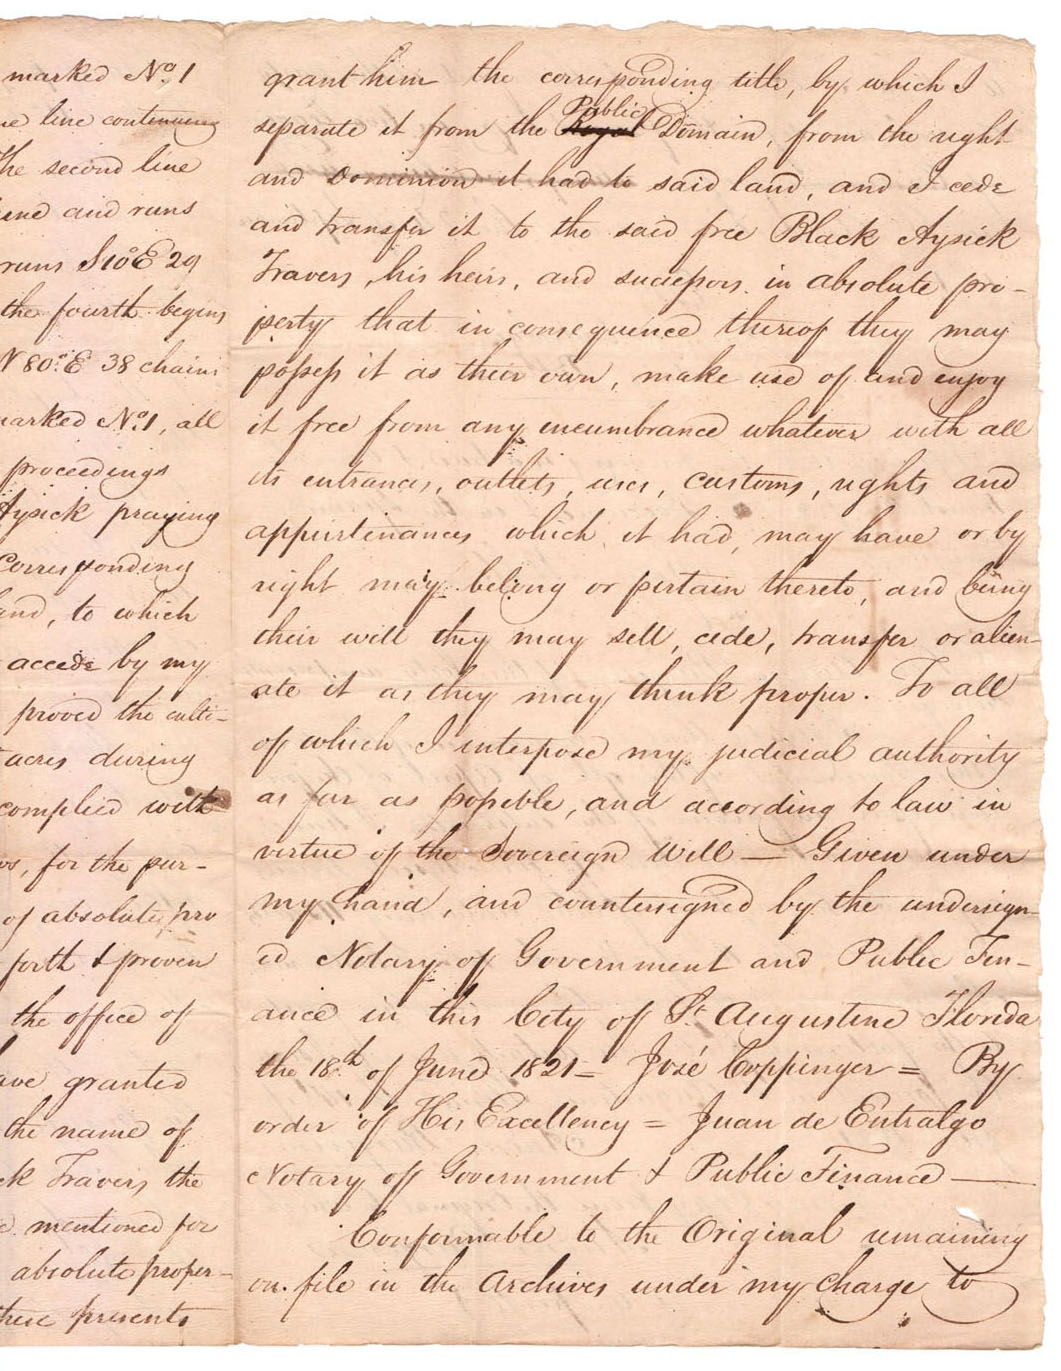 marked No. 1
ne line contenuing
The second line
line and runs
runs S10°E 29
the fourth begins
N 80° E 38 chains
marked No. 1, all
proceedings
Aysick praying
Corresponding
and, to which
accede by my
proved the culti-
acres during
complied with
for the pur-
of absolute pro
forth & proven
the office of
ave granted
the name of
ck Travers the
mentioned for
absolute proper-
these presents
grant him the corresponding title, by which I
Public
separate it from the Royal Domain, from the right
and Dominion it had to said land, and I cede
and transfer it to the said free Black Aysick
Travers, his heirs, and successors in absolute pro-
perty that in consequence thereof they may
possess it as their own, make use of and enjoy
it free from any incumbrance whatever with all
its entrances, outlets, uses, customs, rights and
appurtinances which it had, may have or by
right may belong or pertain thereto, and being
their will they may sell, cede, transfer or alien-
ate it as they may think proper. To all
of which I interpose my judicial authority
as far as possible, and according to law in
virtue of the Sovereign Will — Given under
my hand, and countersigned by the undersign-
ed Notary of Government and Public Fin-
ance in this City of St. Augustine Florida
the 18th of June 1821 = José Coppinger = By
order of His Excellency = Juan de Entralgo
Notary of Government & Public Finance —
Conformable to the Original remaining
on file in the Archives under my charge to